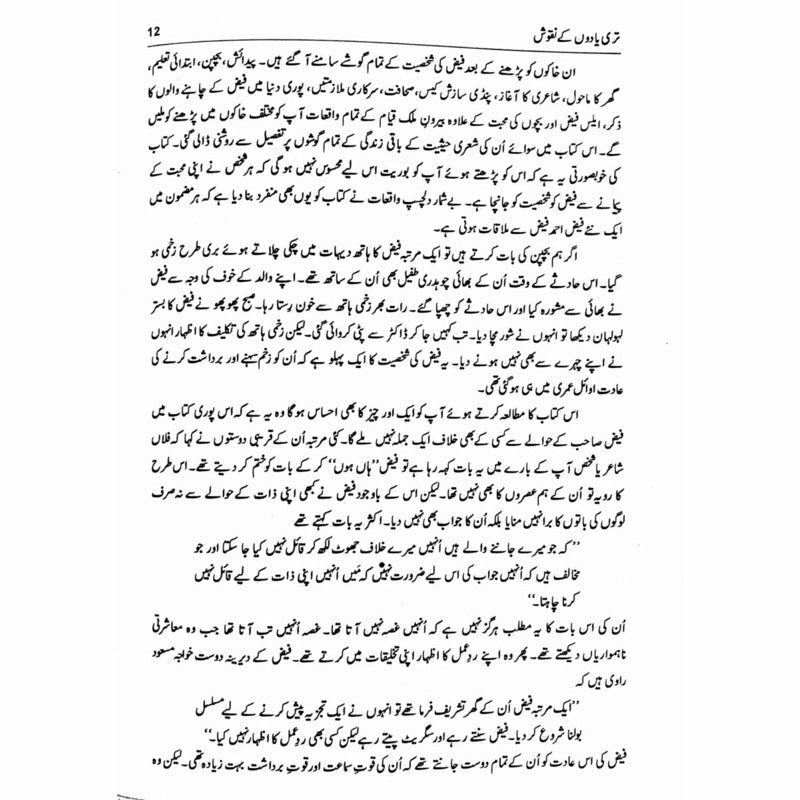 تری یادوں کے نقوش 12
ان خاکوں کو پڑھنے کے بعد فیض کی شخصیت کے تمام گوشے سامنے آ گئے ہیں۔ پیدائش، بچپن، ابتدائی تعلیم،
گھر کا ماحول، شاعری کا آغاز، پنڈی سازش کیس، صحافت، سرکاری ملازمتیں، پوری دنیا میں فیض کے چاہنے والوں کا
ذکر، ایلس فیض اور بچوں کی محبت کے علاوہ بیرونِ ملک قیام کے تمام واقعات آپ کو مختلف خاکوں میں پڑھنے کو ملیں
گے۔ اس کتاب میں سوائے اُن کی شعری حیثیت کے باقی زندگی کے تمام گوشوں پر تفصیل سے روشنی ڈالی گئی۔ کتاب
کی خوبصورتی یہ ہے کہ اس کو پڑھتے ہوئے آپ کو بوریت اس لیے محسوس نہیں ہو گی کہ ہر شخص نے اپنی محبت کے
پیمانے سے فیض کو شخصیت کو جانچا ہے۔ بے شمار دلچسپ واقعات نے کتاب کو یوں بھی منفرد بنا دیا ہے کہ ہر مضمون میں
ایک نئے فیض احمد فیض سے ملاقات ہوتی ہے۔
اگر ہم بچپن کی بات کرتے ہیں تو ایک مرتبہ فیض کا ہاتھ دیہات میں چکی چلاتے ہوئے بری طرح زخمی ہو
گیا۔ اس حادثے کے وقت اُن کے بھائی چوہدری طفیل بھی اُن کے ساتھ تھے۔ اپنے والد کے خوف کی وجہ سے فیض
نے بھائی سے مشورہ کیا اور اس حادثے کو چھپا گئے۔ رات بھر زخمی ہاتھ سے خون رستا رہا۔ صبح پھوپھو نے فیض کا بستر
لہولہان دیکھا تو انہوں نے شور مچا دیا۔ تب کہیں جا کر ڈاکٹر سے پٹی کروائی گئی۔ لیکن زخمی ہاتھ کی تکلیف کا اظہار انہوں
نے اپنے چہرے سے بھی نہیں ہونے دیا۔ یہ فیض کی شخصیت کا ایک پہلو ہے کہ اُن کو زخم سہنے اور برداشت کرنے کی
عادت اوائل عمری میں ہی ہو گئی تھی۔
اس کتاب کا مطالعہ کرتے ہوئے آپ کو ایک اور چیز کا بھی احساس ہو گا وہ یہ ہے کہ اس پوری کتاب میں
فیض صاحب کے حوالے سے کسی کے بھی خلاف ایک جملہ نہیں ملے گا۔ کئی مرتبہ اُن کے قریبی دوستوں نے کہا کہ فلاں
شاعر یا شخص آپ کے بارے میں یہ بات کہہ رہا ہے تو فیض ’’ہاں ہوں‘‘ کر کے بات کو ختم کر دیتے تھے۔ اس طرح
کا رویہ تو اُن کے ہم عصروں کا بھی نہیں تھا۔ لیکن اس کے باوجود فیض نے کبھی اپنی ذات کے حوالے سے نہ صرف
لوگوں کی باتوں کا برا نہیں منایا بلکہ اُن کا جواب بھی نہیں دیا۔ اکثر یہ بات کہتے تھے
’’کہ جو میرے جاننے والے ہیں اُنہیں میرے خلاف جھوٹ لکھ کر قائل نہیں کیا جا سکتا اور جو
مخالف ہیں کہ اُنہیں جواب کی اس لیے ضرورت نہیں کہ مَیں اُنہیں اپنی ذات کے لیے قائل نہیں
کرنا چاہتا۔‘‘
اُن کی اس بات کا یہ مطلب ہرگز نہیں ہے کہ اُنہیں غصہ نہیں آتا تھا۔ غصہ اُنہیں تب آتا تھا جب وہ معاشرتی
ناہمواریاں دیکھتے تھے۔ پھر وہ اپنے ردِعمل کا اظہار اپنی تخلیقات میں کرتے تھے۔ فیض کے دیرینہ دوست خواجہ مسعود
راوی ہیں کہ
’’ایک مرتبہ فیض اُن کے گھر تشریف فرما تھے تو انہوں نے ایک تجزیہ پیش کرنے کے لیے مسلسل
بولنا شروع کر دیا۔ فیض سنتے رہے اور سگریٹ پیتے رہے لیکن کسی بھی ردِعمل کا اظہار نہیں کیا۔‘‘
فیض کی اس عادت کو اُن کے تمام دوست جانتے تھے کہ اُن کی قوتِ سماعت اور قوتِ برداشت بہت زیادہ تھی۔ لیکن وہ